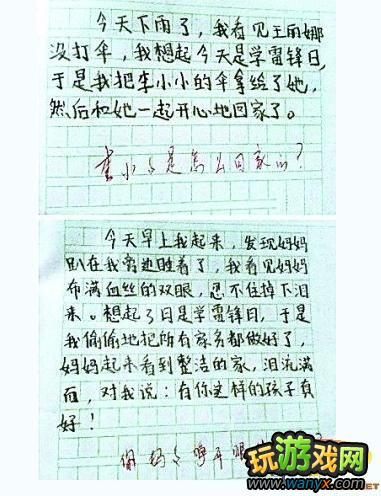 今天下雨了，我看见王雨娜
没打伞，我想起今天是学雷锋日，
于是我把李小小的伞拿给了她，
然后和她一起开心地回家了。
李小小是怎么回家的？
今天早上我起来，发现妈妈
趴在我旁边睡着了，我看见妈妈
布满血丝的双眼，忍不住掉下泪
来。想起了日是学雷锋日，于是
我偷偷地把所有家务都做好了，
妈妈起来看到整洁的家，泪流满
面，对我说：有你这样的孩子真
好！
你妈妈睁开眼
玩游戏网
www.wanyx.com